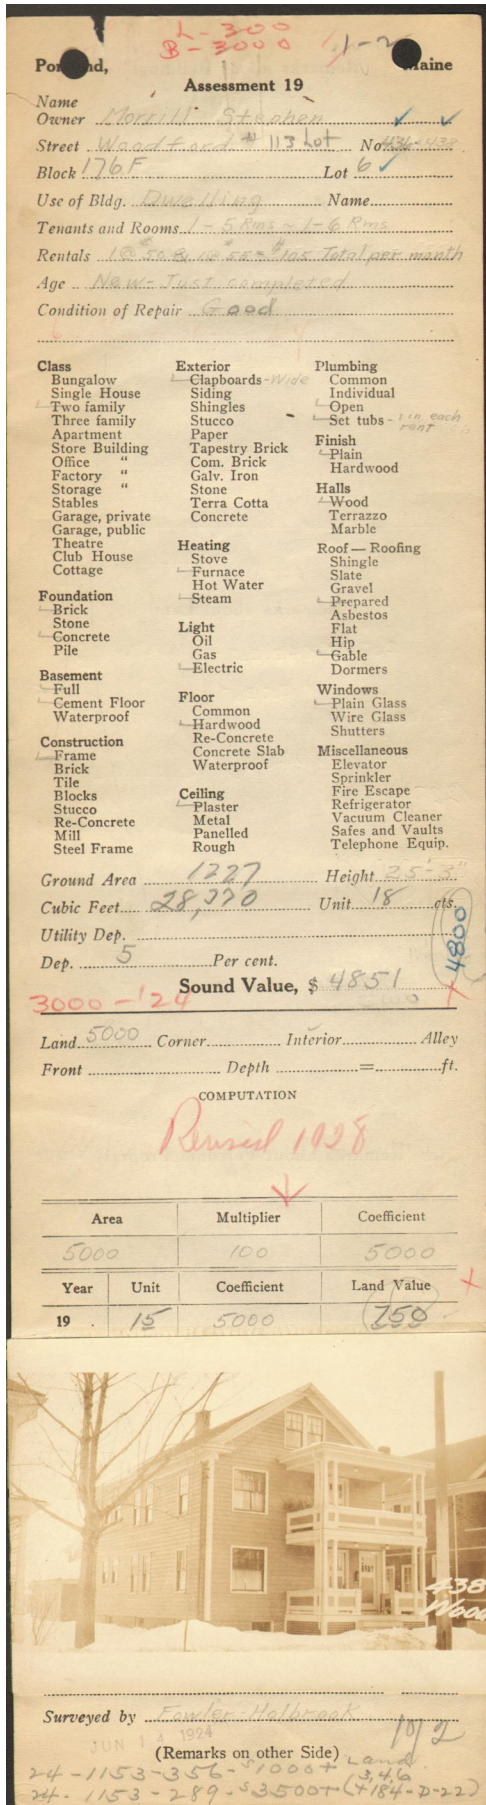 L-300
B-3000
1-2
Portland, Maine
Assessment 19
Name
Owner Morrill Stephen
Street Woodford #113 Lot No. 436-438
Block 176F Lot 6
Use of Bldg. Dwelling Name
Tenants and Rooms 1-5 Rms - 1-6 Rms
Rentals 1@$50 & 1@$55=$105 Total per month
Age New-Just completed
Condition of Repair Good
Class
Bungalow
Single House
Two family
Three family
Apartment
Store Building
Office "
Factory "
Storage "
Stables
Garage, private
Garage, public
Theatre
Club House
Cottage
Foundation
Brick
Stone
Concrete
Pile
Basement
Full
Cement Floor
Waterproof
Construction
Frame
Brick
Tile
Blocks
Stucco
Re-Concrete
Mill
Steel Frame
Exterior
Clapboards-Wide
Siding
Shingles
Stucco
Paper
Tapestry Brick
Com. Brick
Galv. Iron
Stone
Terra Cotta
Concrete
Heating
Stove
Furnace
Hot Water
Steam
Light
Oil
Gas
Electric
Floor
Common
Hardwood
Re-Concrete
Concrete Slab
Waterproof
Ceiling
Plaster
Metal
Panelled
Rough
Plumbing
Common
Individual
Open
Set tubs - 1 in each
rent
Finish
Plain
Hardwood
Halls
Wood
Terrazzo
Marble
Roof — Roofing
Shingle
Slate
Gravel
Prepared
Asbestos
Flat
Hip
Gable
Dormers
Windows
Plain Glass
Wire Glass
Shutters
Miscellaneous
Elevator
Sprinkler
Fire Escape
Refrigerator
Vacuum Cleaner
Safes and Vaults
Telephone Equip.
Ground Area 1227 Height 25'-3"
Cubic Feet 28,370 Unit 18 cts.
Utility Dep.
4800
Dep. 5 Per cent.
Sound Value, $ 4851
3000-'24
Land 5000 Corner Interior Alley
Front Depth = ft.
COMPUTATION
Revised 1928
Area Multiplier Coefficient
5000 100 5000
Year Unit Coefficient Land Value
19 15 5000 750
438
Wood
Surveyed by Fowler-Holbrook
JUN 14 1924
10/2
(Remarks on other Side)
24-1153-356-$1000+ Land
3,4,6
24-1153-289-$3500+(+184-D-22)